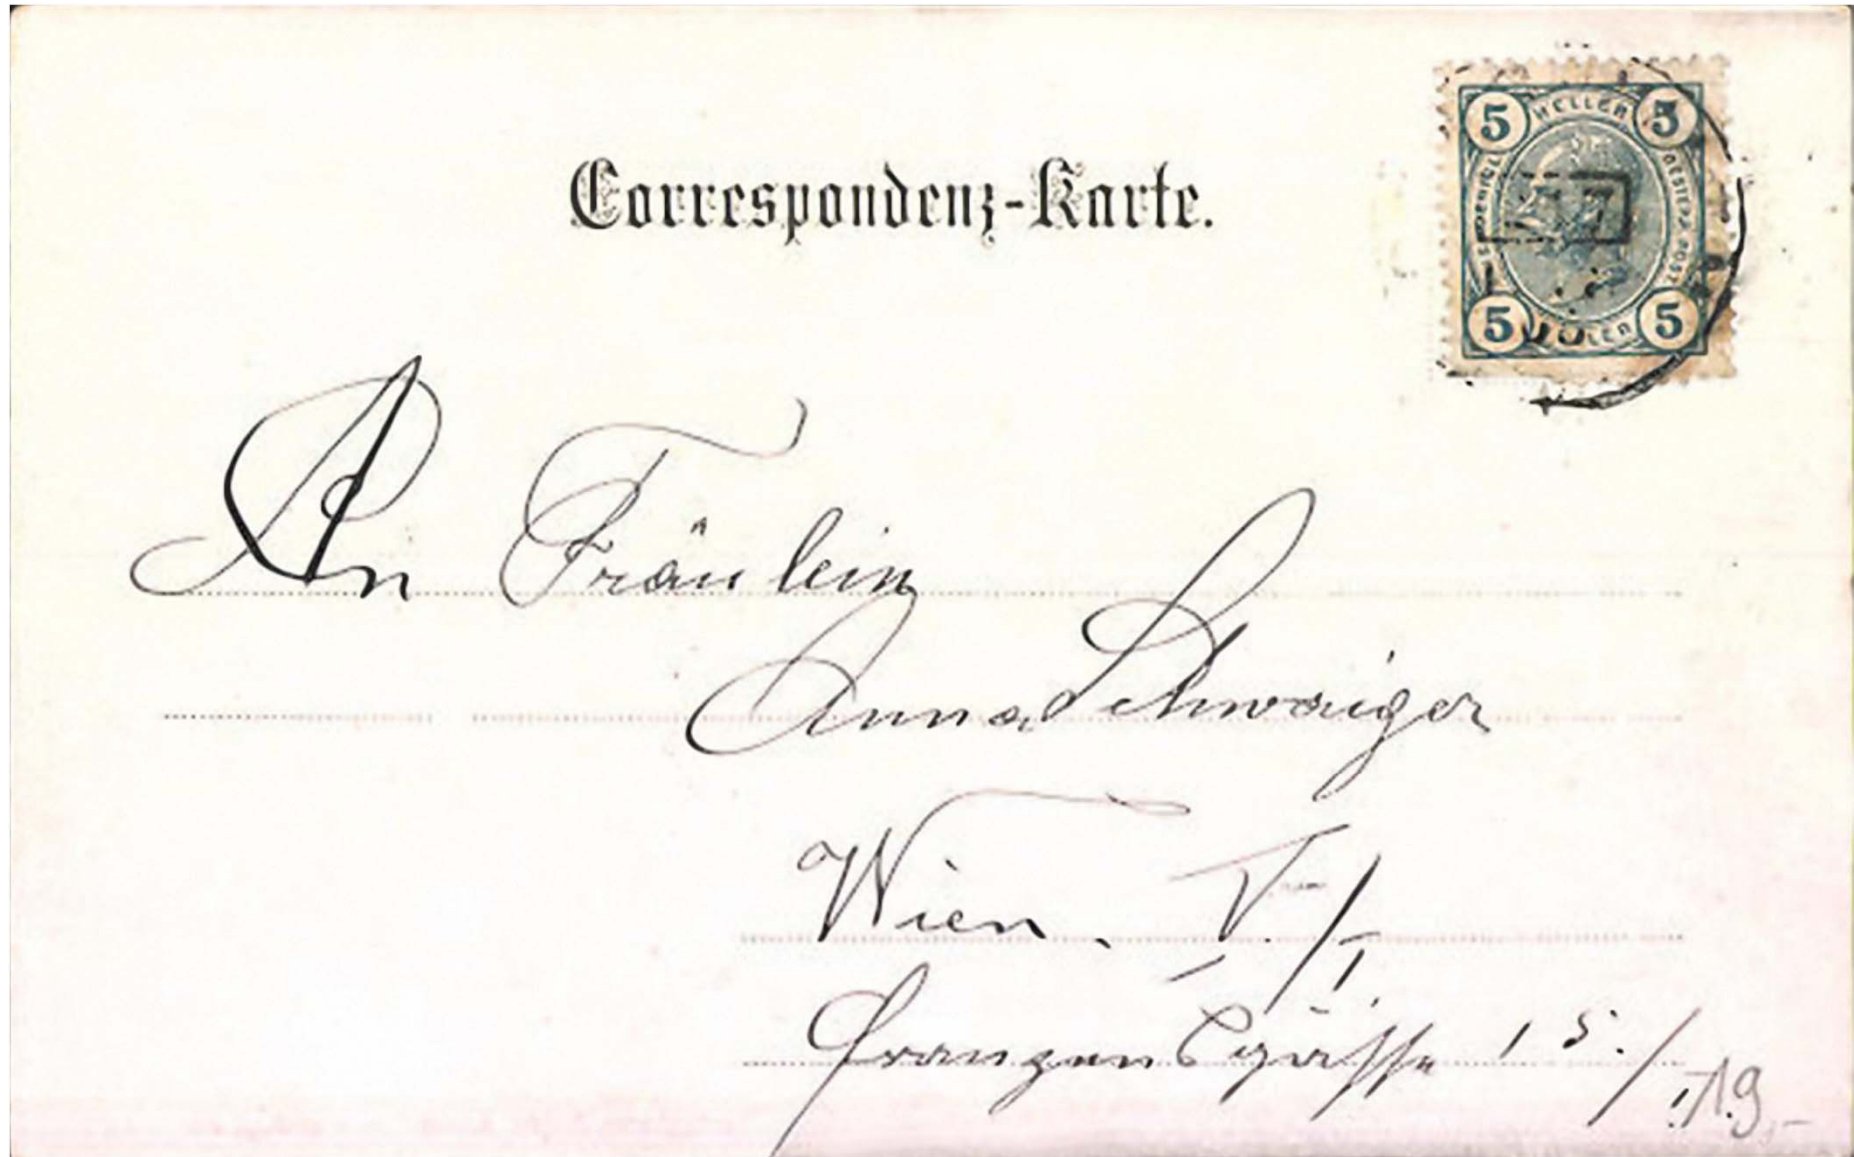 Correspondenz-Karte.
5 HELLER 5
5 HELLER 5
An Fräulein
Anna Schwaiger
Wien. V./I
Franzensgasse 15./